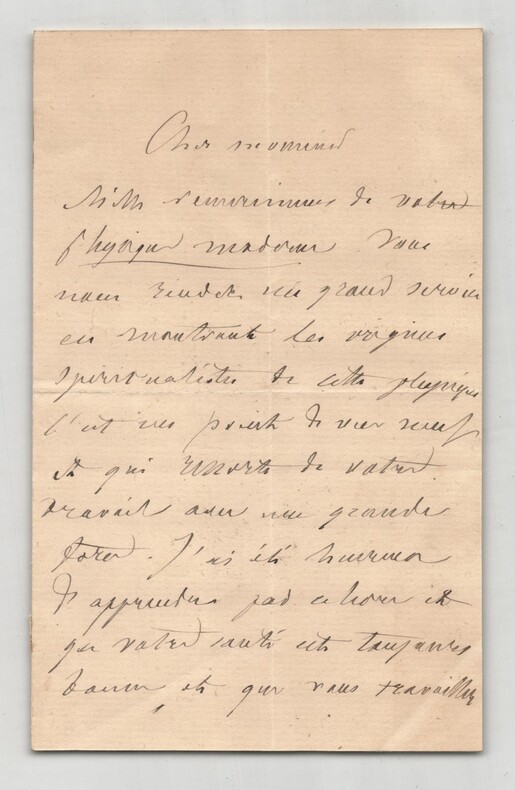 Cher monsieur
Mille remerciements de votre
physique moderne. Vous
nous rendez un grand service
en montrant les origines
spiritualistes de cette physique
c'est un point de vue neuf
et qui ressort de votre
travail avec une grande
force. J'ai été heureux
d'apprendre par ce livre
que votre santé est toujours
bonne et que vous travaillez